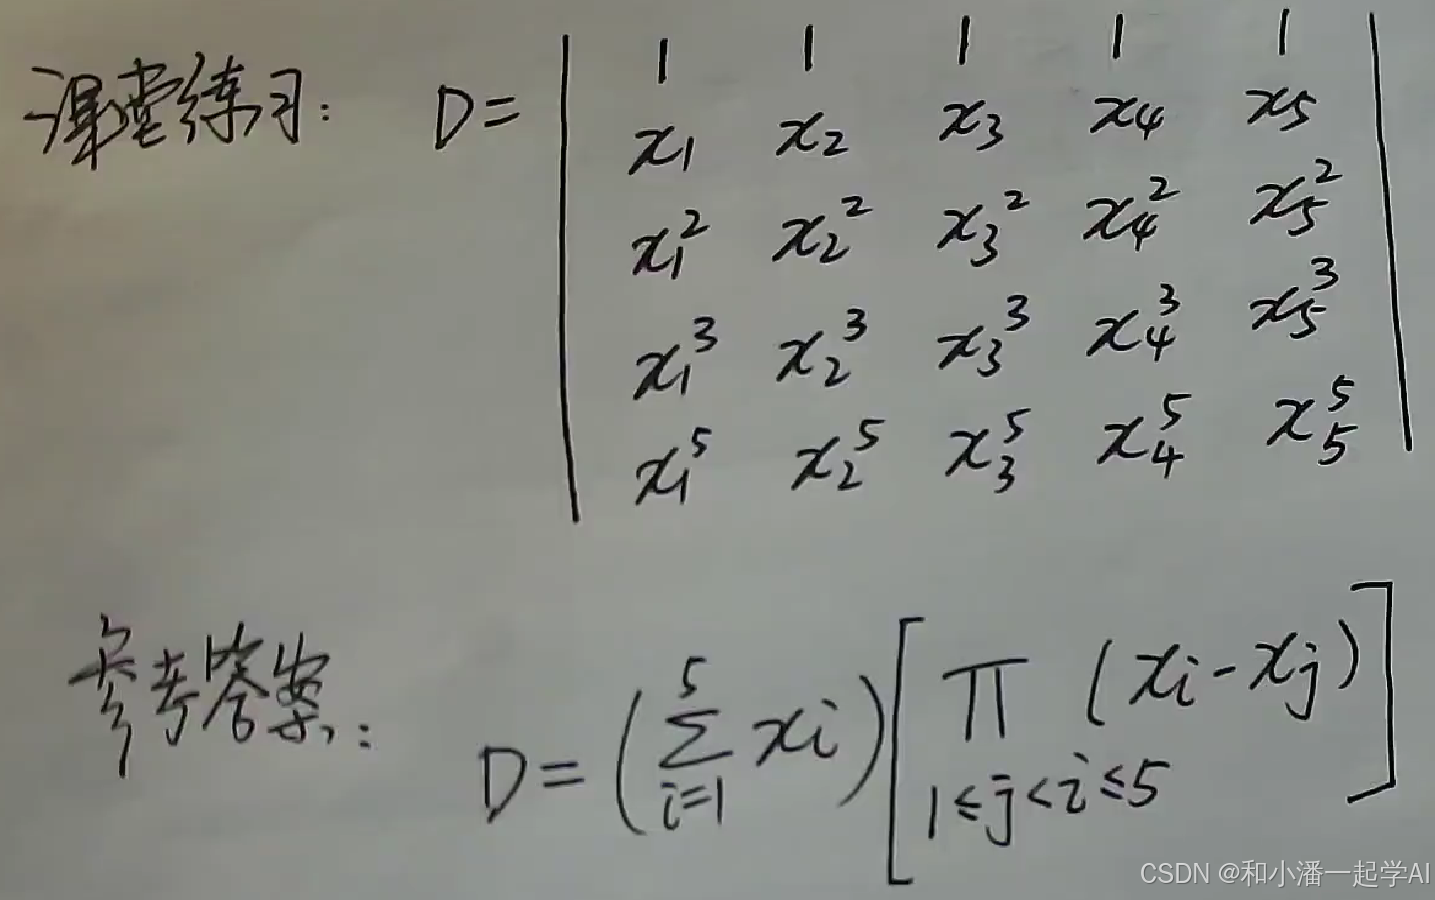 课堂练习: D= | 1 1 1 1 1 |
x₁ x₂ x₃ x₄ x₅
x₁² x₂² x₃² x₄² x₅²
x₁³ x₂³ x₃³ x₄³ x₅³
x₁⁵ x₂⁵ x₃⁵ x₄⁵ x₅⁵
参考答案: D=(∑_{i=1}^{5} xi)[∏_{1≤j<i≤5} (xi-xj)]
CSDN @和小潘一起学AI